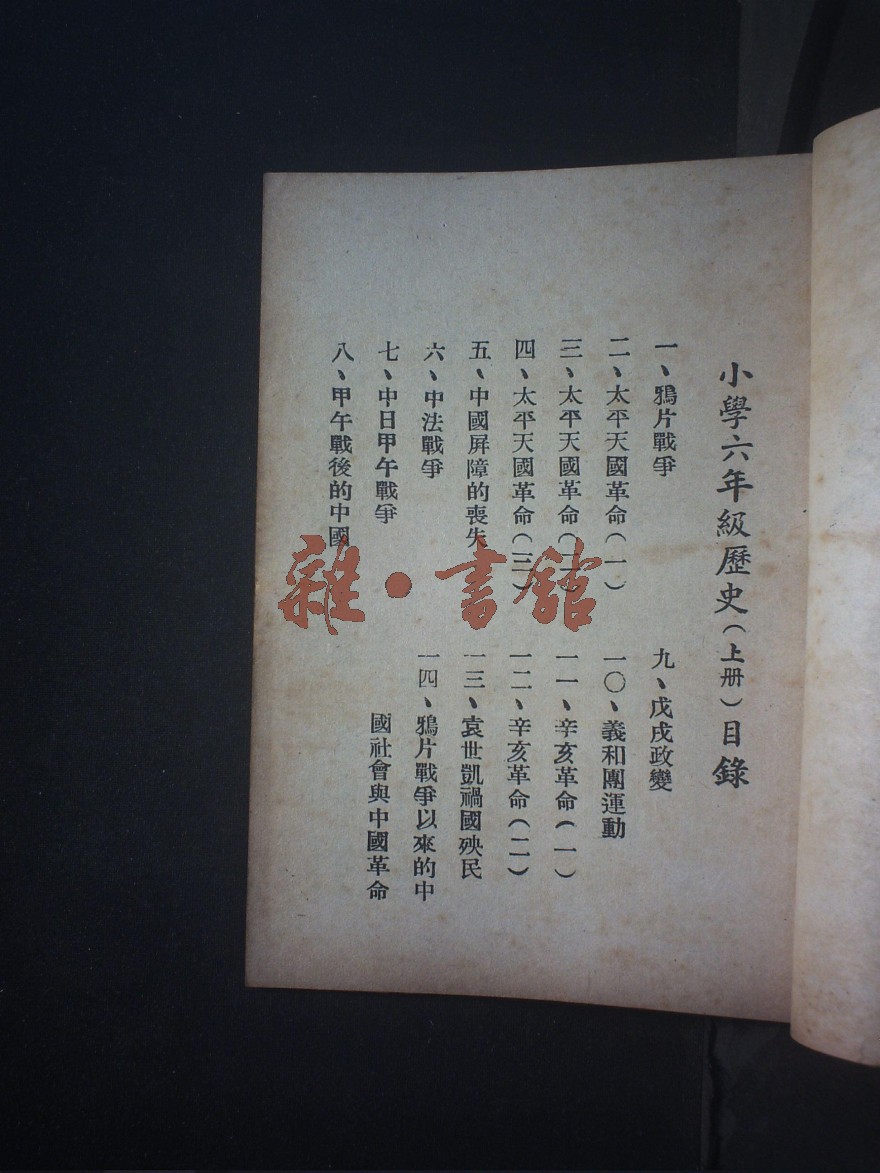 小學六年級歷史(上册)目錄
一、鴉片戰爭
二、太平天國革命(一)
三、太平天國革命(二)
四、太平天國革命(三)
五、中國屏障的喪失
六、中法戰爭
七、中日甲午戰爭
八、甲午戰後的中國
九、戊戌政變
一〇、義和團運動
一一、辛亥革命(一)
一二、辛亥革命(二)
一三、袁世凱禍國殃民
一四、鴉片戰爭以來的中
國社會與中國革命
雜·書館